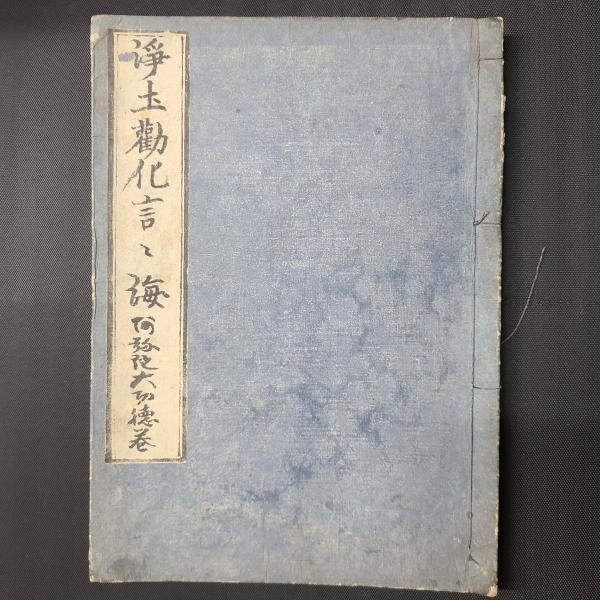 淨土勸化言〻海阿弥陀大功徳巻